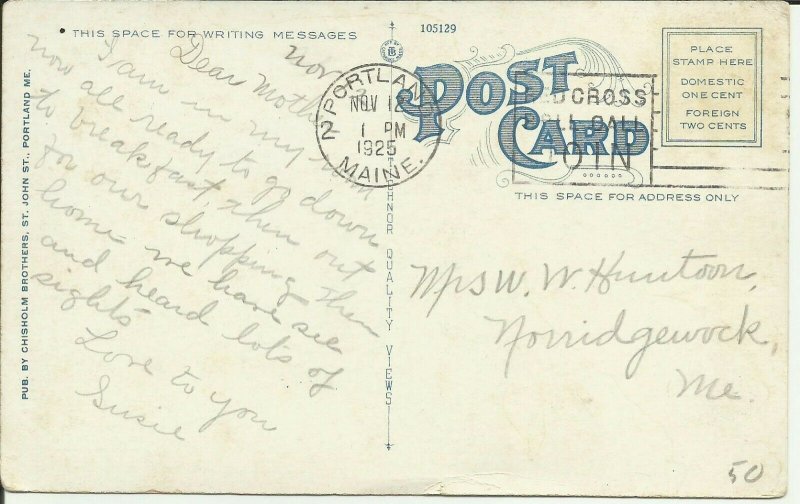 THIS SPACE FOR WRITING MESSAGES
Nov
Dear Mother
I am in my room
now all ready to go down
to breakfast, then out
for our shopping then
home we have see
and heard lots of
sights
Love to you
Susie
PUB. BY CHISHOLM BROTHERS, ST. JOHN ST., PORTLAND ME.
105129
POST CARD
TECHNOR QUALITY VIEWS
PORTLAND
2
NOV 12
1 PM
1925
MAINE.
CROSS
CALL
JOIN
PLACE
STAMP HERE
DOMESTIC
ONE CENT
FOREIGN
TWO CENTS
THIS SPACE FOR ADDRESS ONLY
Mrs W. W. Huntoon,
Norridgewock,
Me.
50